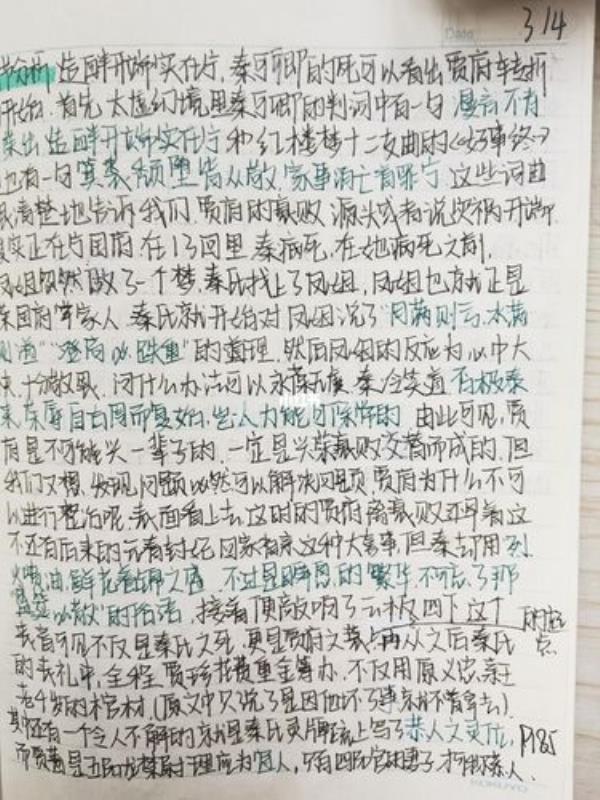 3/4
节分析 造衅开端实在宁,秦可卿的死可以看出贾府转折
开始.首先 太虚幻境里秦可卿的判词中有一句 漫言不肖
荣出 造衅开端实在宁 和红楼梦十二支曲的《好事终》
也有一句 箕裘颓堕皆从敬,家事消亡首罪宁.这些词曲
清楚地告诉我们 贾府的衰败 源头或者说灾祸开端.
实正在宁国府.在13回里 秦病死,在她病死之前,
凤姐忽然做了一个梦,秦氏找上了凤姐,凤姐也方就正是
荣国府掌家人 秦氏就开始对凤姐说了"月满则亏,水满
则溢""登高必跌重"的道理.然后凤姐的反应为心中大
快,十分敬畏.问什么办法可以永葆无虞.秦冷笑道 否极泰
来,荣辱自古周而复始,岂人力能可保常的 由此可见,贾
府是不可能兴一辈子的.一定是兴荣衰败交替而成的.但
我们又想,发现问题必然可以解决问题,贾府为什么不可
以进行整治呢,表面看上去,这时的贾府离衰败还早着 这
不还有后来的元春封妃 回家省亲这种大喜事,但秦却用 烈
火烹油,鲜花着锦之盛 不过是瞬息的繁华,不可忘了那
盛筵必散"的俗语,接着便敲响了云板四下这个
丧音可见不仅是秦氏之死,更是贾府之衰的起点.再从之后秦氏
的丧礼中,全程贾珍花费重金筹办.不仅用原义忠亲王
老千岁的棺材(原文中只说了是因他坏了事就不曾拿去)
其中还有一个令人不解的就是秦氏灵牌疏上写了恭人之灵位, P185
而贾蓉是五品龙禁尉 理应为宜人,只有四品官的妻子才能称恭人.